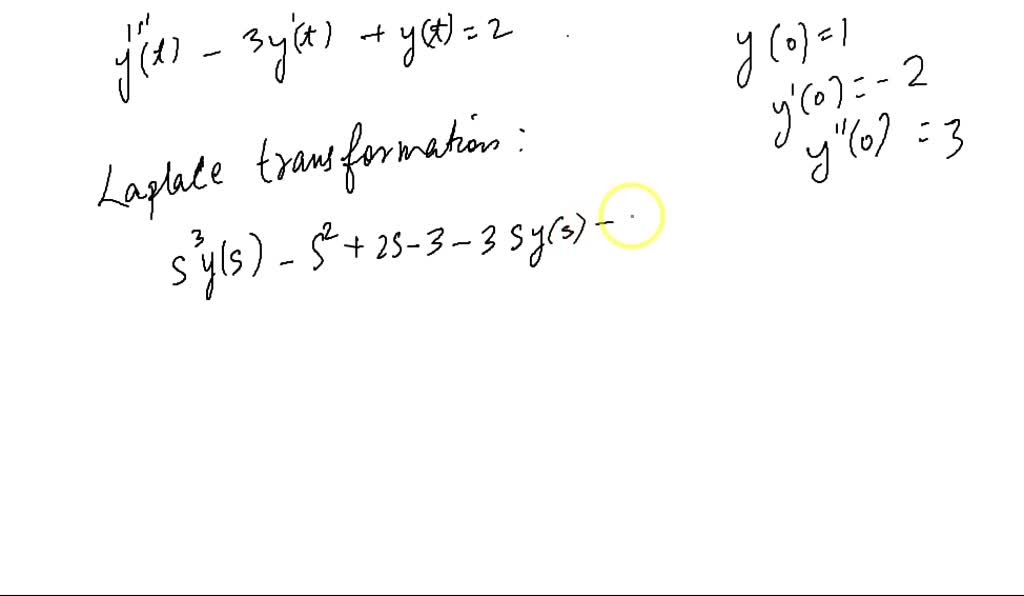 y'''(t) - 3y'(t) + y(t) = 2
y(0) = 1
y'(0) = - 2
y''(0) = 3
Laplace transformation:
s³y(s) - s² + 2s - 3 - 3sy(s) -